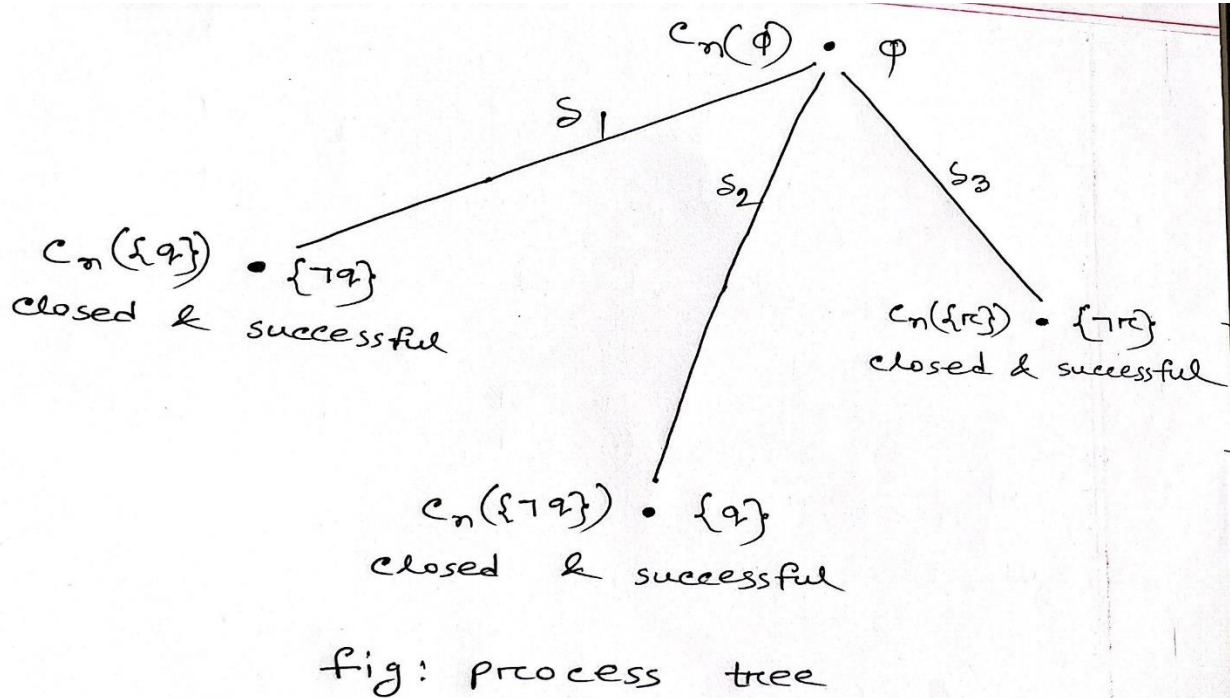 Cn(Φ) • φ
δ1
δ2
δ3
Cn({q}) • {¬q}
closed & successful
Cn({r}) • {¬r}
closed & successful
Cn({¬q}) • {q}
closed & successful
fig: process tree